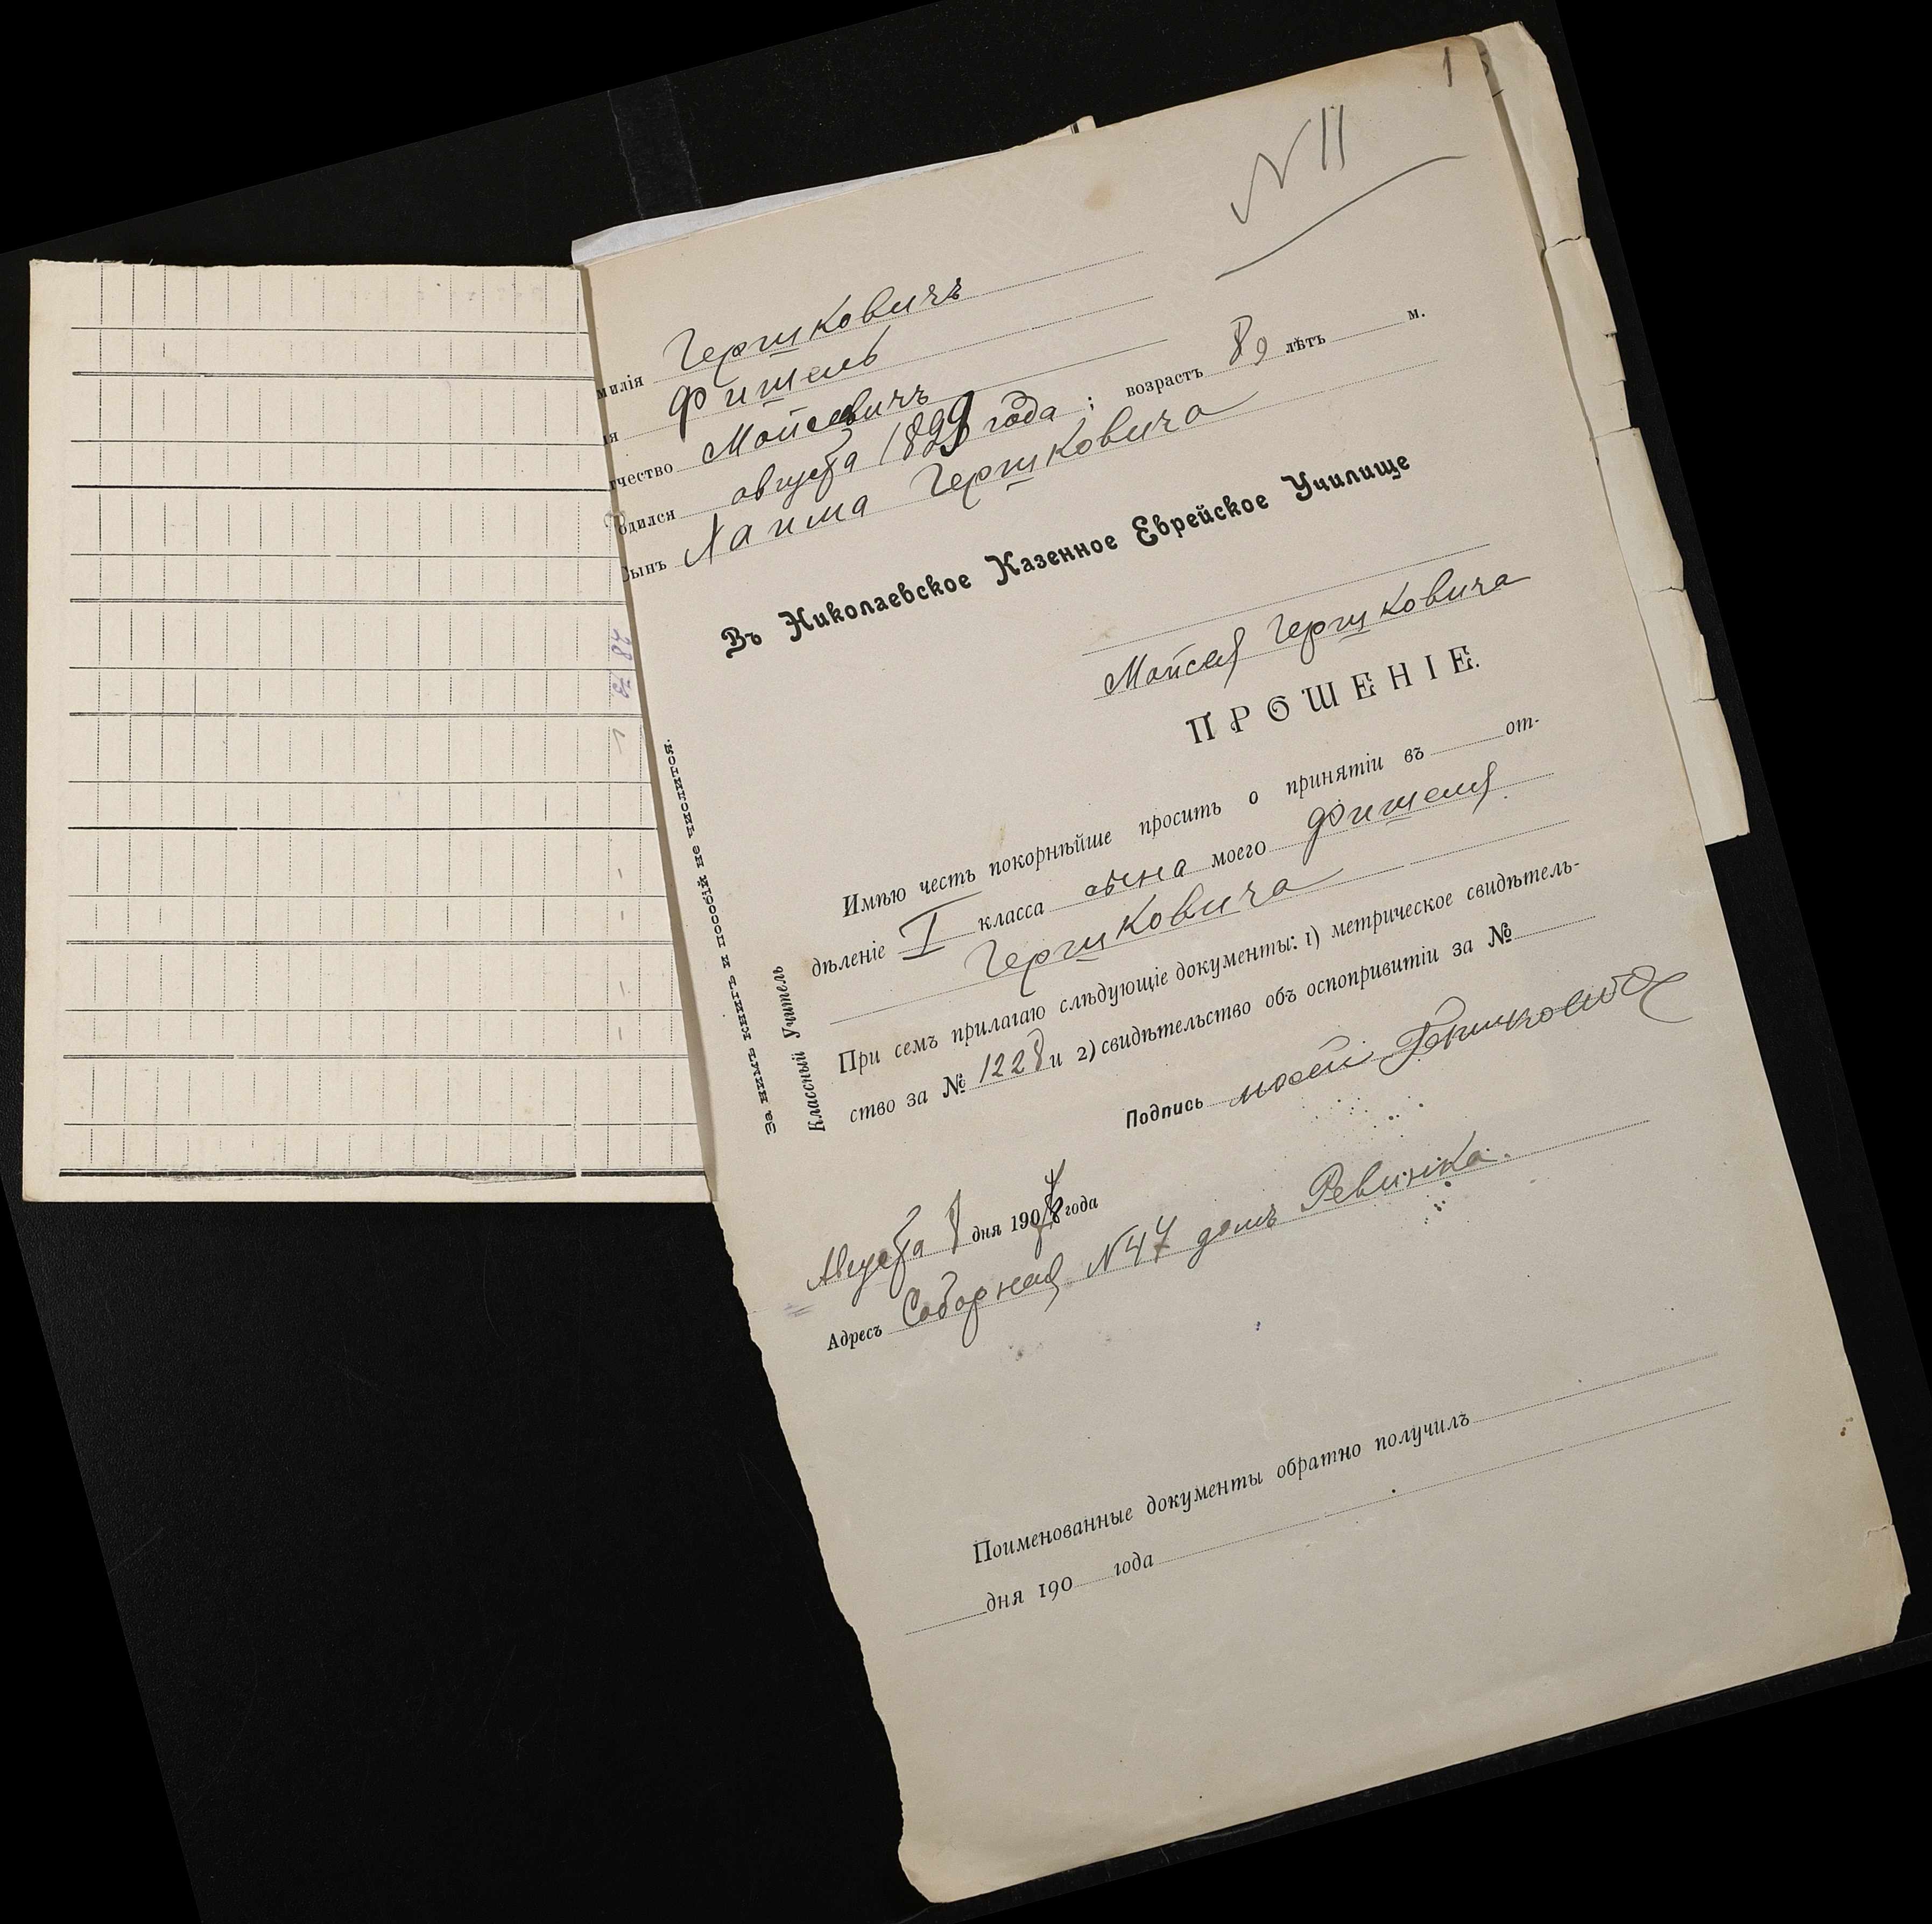 1
N 11
милія Гершковичъ
я Фишель
чество Мойсеевичъ
одился августа 1899 года ; возрастъ 8 лѣтъ м.
Сынъ Хаима Гершковича
Въ Николаевское Казенное Еврейское Училище
Мойсея Гершковича
ПРОШЕНІЕ.
Имѣю честь покорнѣйше просить о принятіи въ от-
дѣленіе I класса сына моего Фишеля
Гершковича
При семъ прилагаю слѣдующіе документы: 1) метрическое свидѣтель-
ство за № 1228 и 2) свидѣтельство объ оспопривитіи за №
Подпись
Августа 8 дня 190 года
Адресъ Соборная N 47 домъ Ревинка.
Поименованные документы обратно получилъ
дня 190 года
За нимъ книгъ и пособій не числится.
Классный Учитель